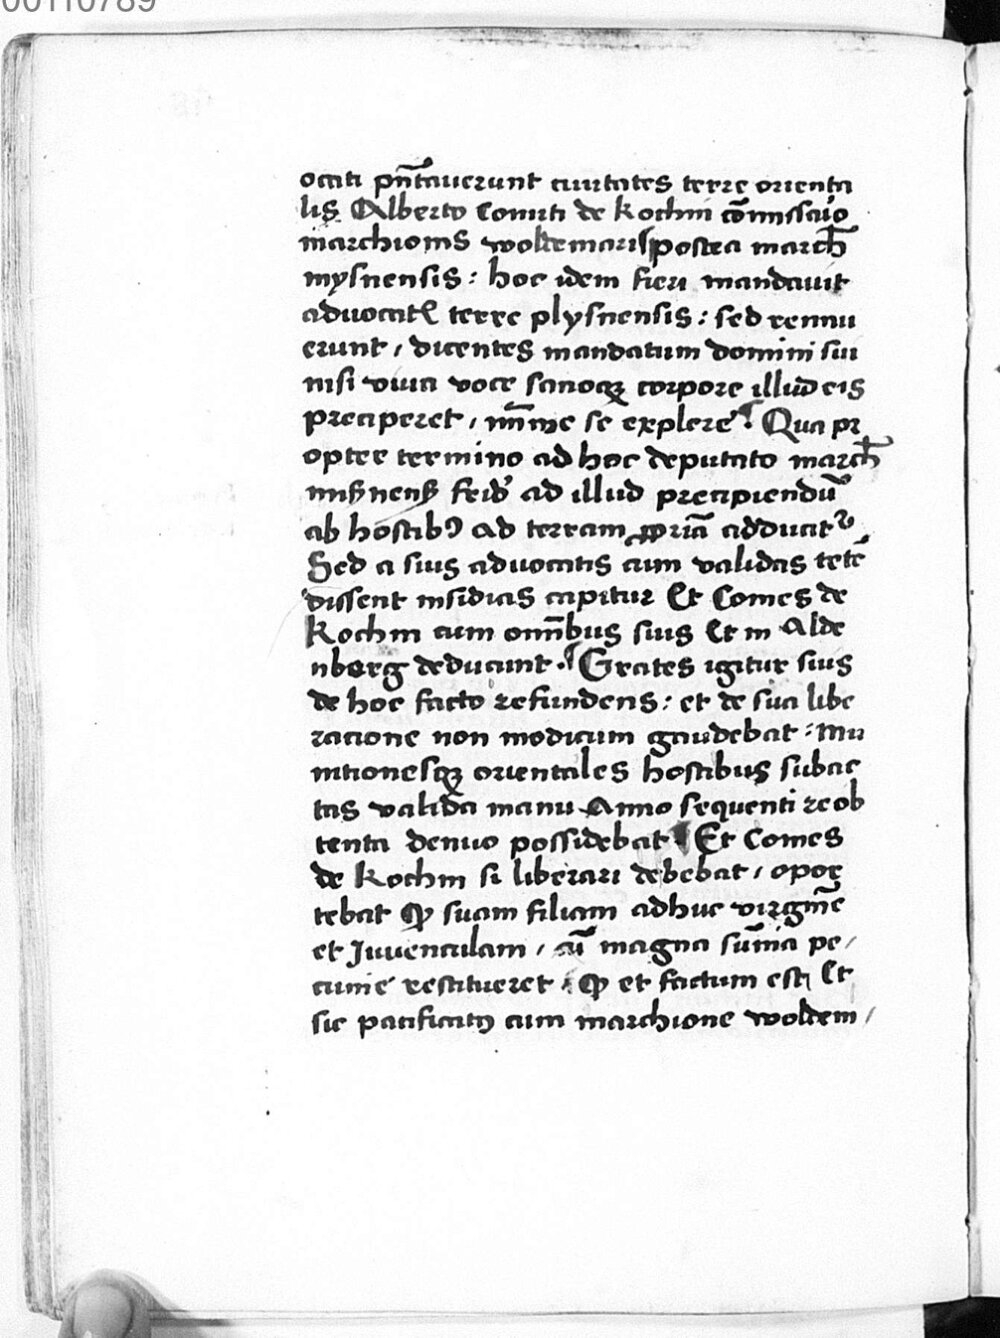 00110789
ocati pn̄tauerunt ciuitates terre orienta
lis Alberto Comiti de Kochin cōmissaio
marchionis woldemari postea march̄
mysnensis : hoc idem fieri mandauit
aduocatꝭ terre plysnensis : sed rennu
erunt / dicentes mandatum domini sui
nisi viua voce sanoqꝫ corpore illud eis
preciperet / mīme se explere Qua pr
opter termino ad hoc deputato march̄
mißnenß frids ad illud precipiendū
ab hostibꝰ ad terram ꝓpriā adducitᷣ
Sed a suis aduocatis cum validas tetē
dissent insidias capitur Et Comes de
Kochin cum omībus suis Et in Alde
nberg deducunt . Grates igitur suis
de hoc facto refundens : et de sua libe
racione non modicum gaudebat : Mu
nitionesqꝫ orientales hostibus subac
tas valida manu Anno sequenti reob
tenta denuo possidebat Et Comes
de Kochin si liberari debebat / opor
tebat ꝙ suam filiam adhuc virginē
et Iuuenculam / cū magna sūma pe /
cunie restitueret . ꝙ et factum est Et
sic pacificatꝰ cum marchione woldem /